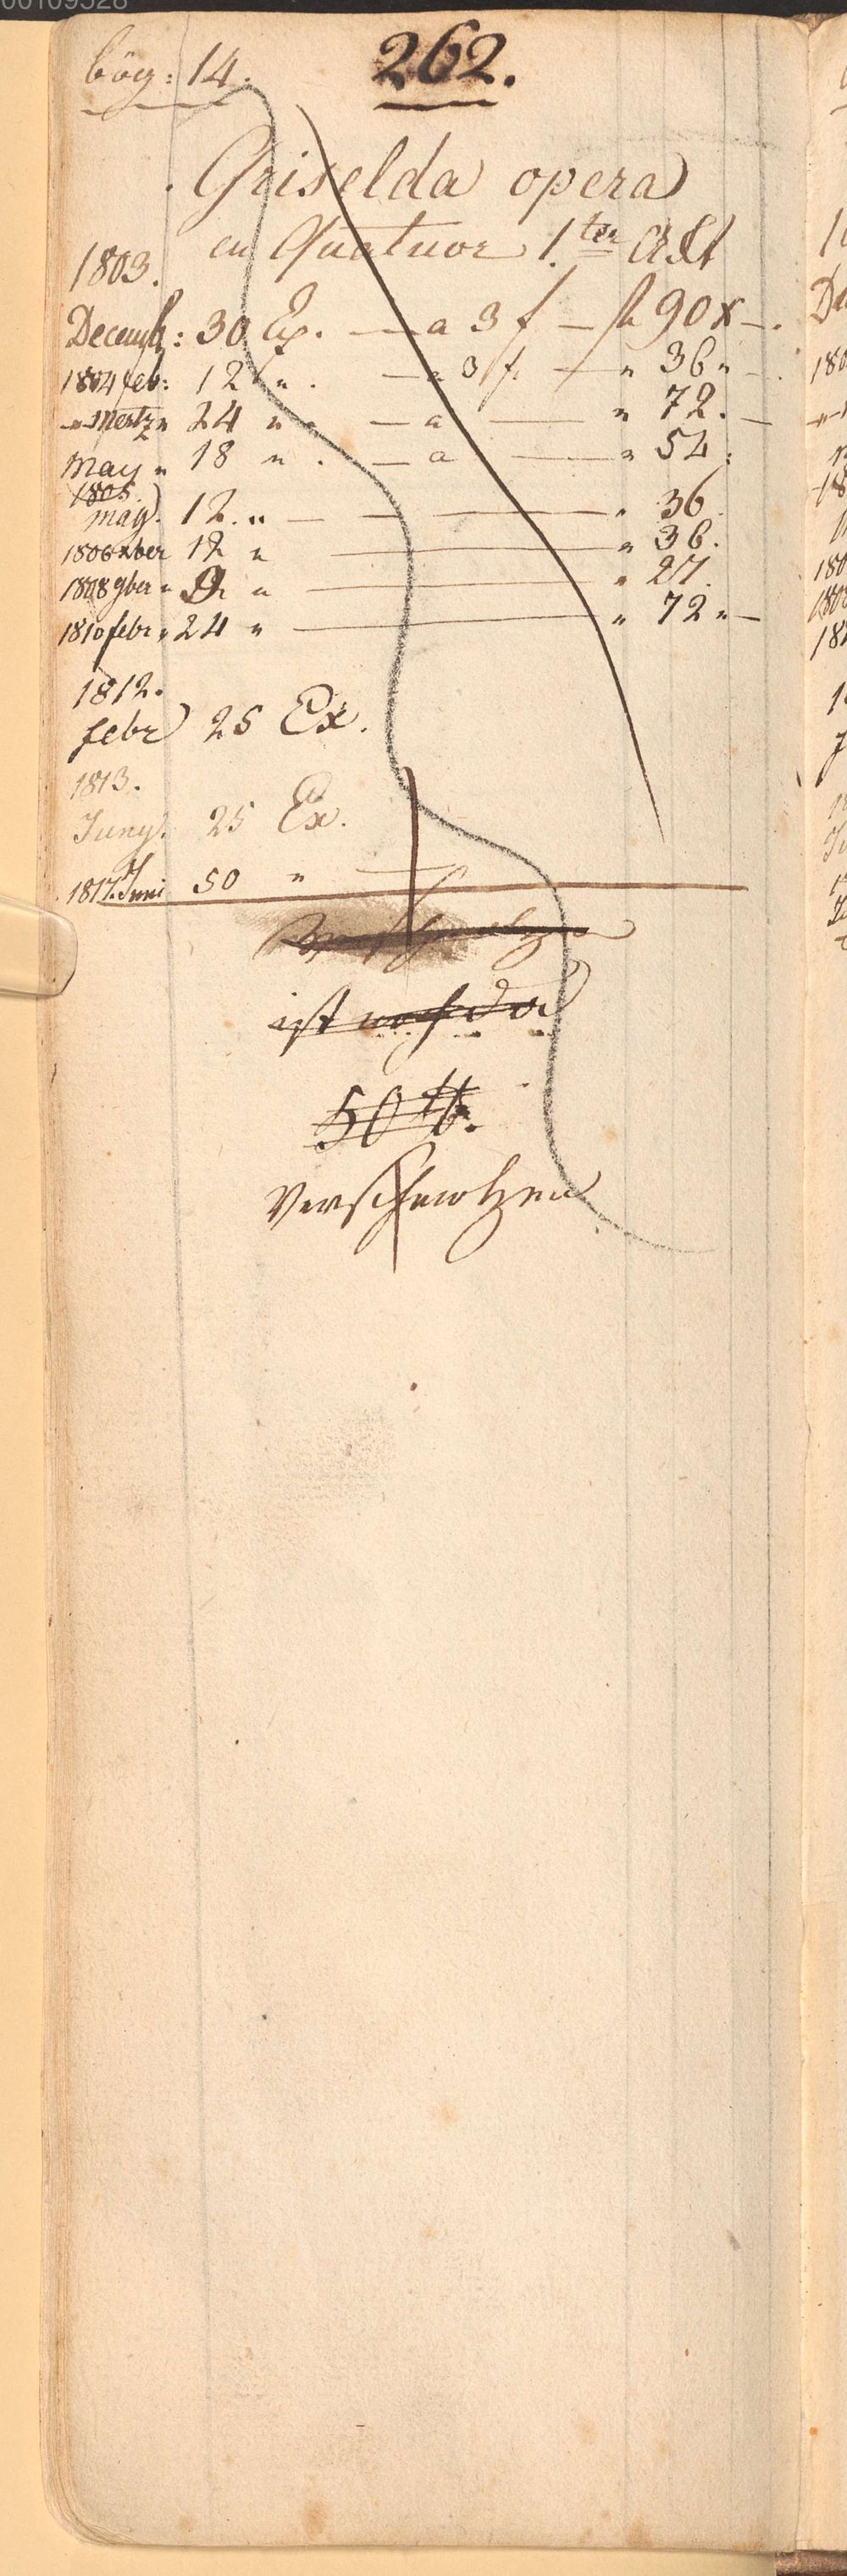 bög: 14.
262.
Griselda opera
en Quatuor 1.ter Akt
1803.
Decemb: 30 Ex. — a 3 f — fl 90 x —.
1804 feb: 12 " . — a 3 f. — " 36 " —
— " — Mertz " 24 " " — a — " 72. —
May " 18 " . — a — " 54.
1805.
May. 12. " — — " 36.
1806 xber 12 " — " 36.
1808 9ber " 9 " — " 27.
1810 febr " 24 " — " 72 " —
1812.
febr 25 Ex.
1813.
Juny. 25 Ex.
1817. Juni 50 " —
ist noch da
50 tt.
Verschmolzen